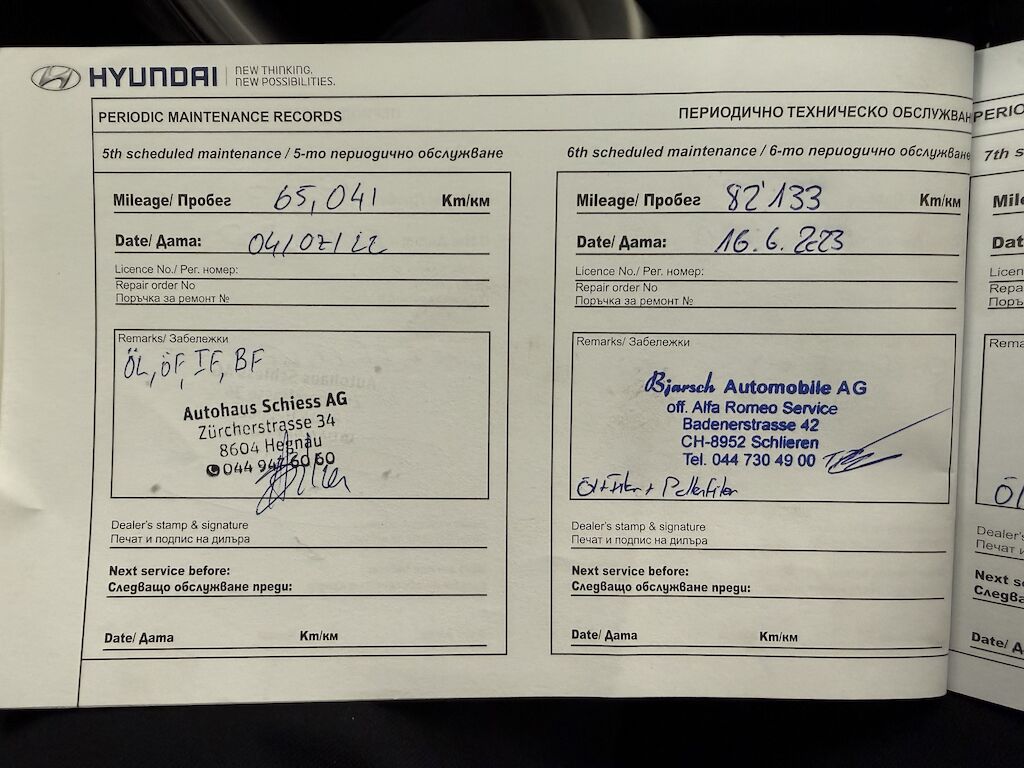 HYUNDAI NEW THINKING.
NEW POSSIBILITIES.
PERIODIC MAINTENANCE RECORDS
ПЕРИОДИЧНО ТЕХНИЧЕСКО ОБСЛУЖВАН
5th scheduled maintenance / 5-то периодично обслужване
Mileage/ Пробег 65,041 Km/км
Date/ Дата: 04/07/22
Licence No./ Рег. номер:
Repair order No
Поръчка за ремонт №
Remarks/ Забележки
ÖL, ÖF, IF, BF
Autohaus Schiess AG
Zürcherstrasse 34
8604 Hegnau
044 947 60 60
Dealer's stamp & signature
Печат и подпис на дилъра
Next service before:
Следващо обслужване преди:
Date/ Дата Km/км
6th scheduled maintenance / 6-то периодично обслужване
Mileage/ Пробег 82'133 Km/км
Date/ Дата: 16.6.2023
Licence No./ Рег. номер:
Repair order No
Поръчка за ремонт №
Remarks/ Забележки
Bjarsch Automobile AG
off. Alfa Romeo Service
Badenerstrasse 42
CH-8952 Schlieren
Tel. 044 730 49 00
Öl+Filter + Pollenfilter
Dealer's stamp & signature
Печат и подпис на дилъра
Next service before:
Следващо обслужване преди:
Date/ Дата Km/км
PERIO
7th s
Mile
Dat
Licen
Repa
Поръ
Rema
Öl
Dealer's
Печат и
Next se
Следва
Date/ Д